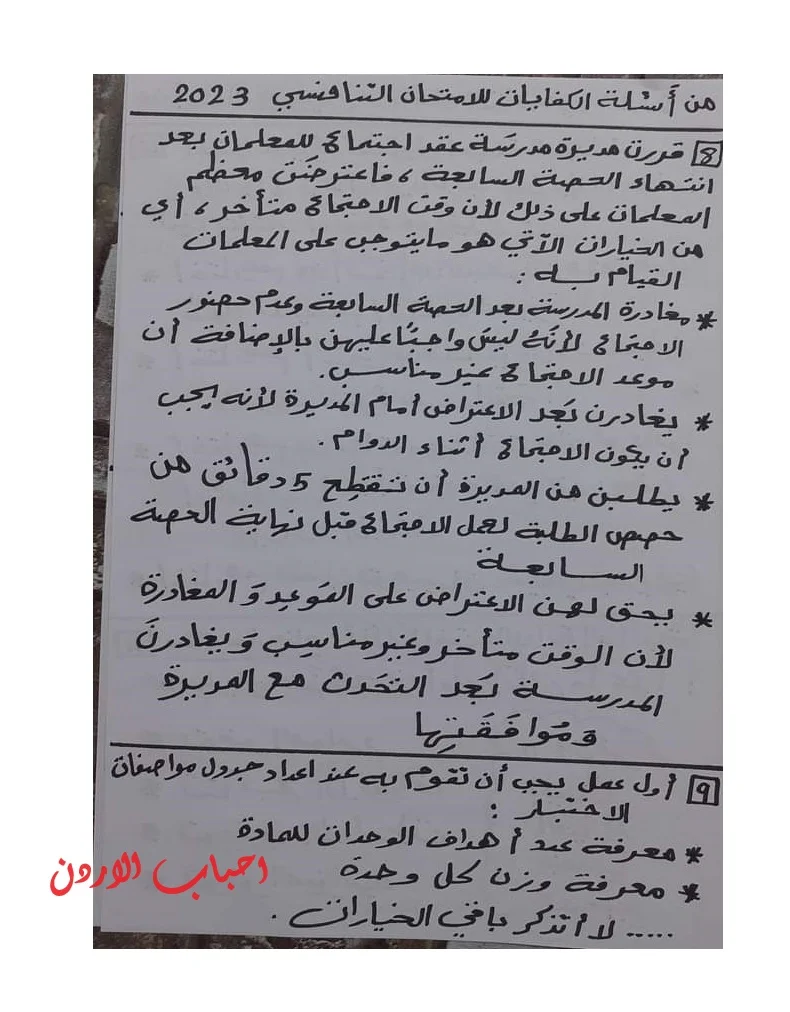 من أسئلة الكفايات للامتحان التنافسي 2023
8 قررت مديرة مدرسة عقد اجتماع للمعلمات بعد
انتهاء الحصة السابعة، فاعترضت معظم
المعلمات على ذلك لأن وقت الاجتماع متأخر، أي
من الخيارات الآتي هو ما يتوجب على المعلمات
القيام به :
* مغادرة المدرسة بعد الحصة السابعة وعدم حضور
الاجتماع لأنَّهُ ليسَ واجبًا عليهن بالإضافة أن
موعد الاجتماع غير مناسب.
* يغادرن بَعد الاعتراض أمام المديرة لأنه يجب
أن يكون الاجتماع أثناء الدوام.
* يطلبن من المديرة أن تقتطِع 5 دقائق من
حصص الطلبة لعمل الاجتماع قبل نهاية الحصة
السابعة
* يحق لهن الاعتراض على المَوعِد وَ المغادرة
لأن الوقت متأخر وغير مناسِب وَ يغادرنَ
المدرسة بَعد التحَدث مع المديرة
وَمُوافَقَتِها
9 أول عمل يجب أن تقوم به عند اعداد جدول مواصفات
الاختبار :
* معرفة عدد أهداف الوحدات للمادة
* معرفة وزن كل وحدة
..... لا أتذكر باقي الخيارات.
احباب الاردن